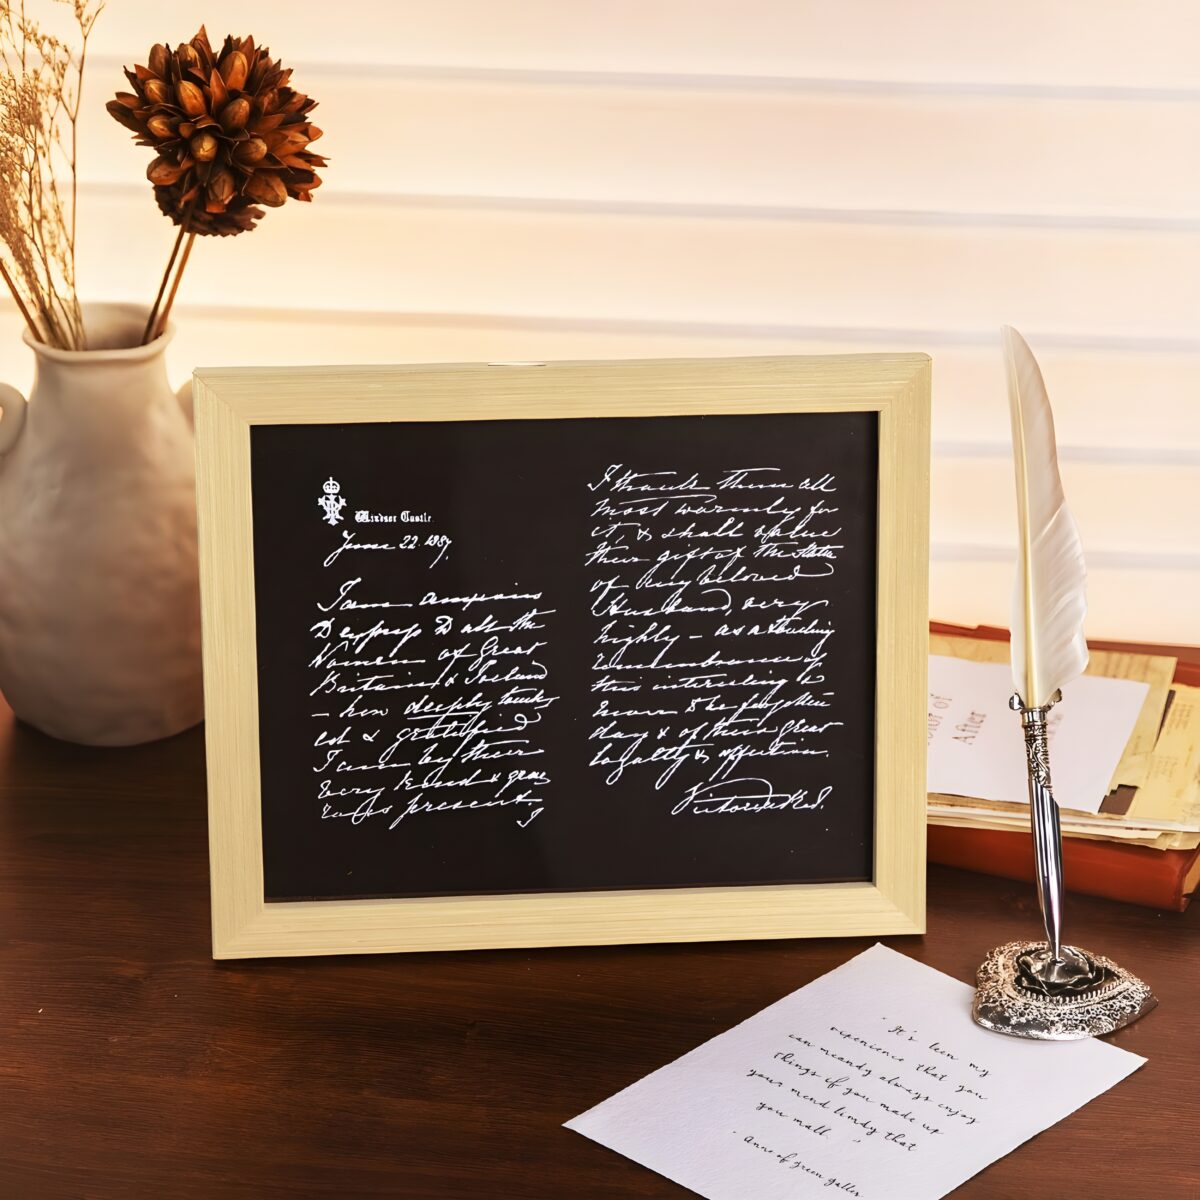 Windsor Castle.
June 22. 1887.
I am anxious
to express to all the
Women of Great
Britain & Ireland
– how deeply touch
ed & gratified
I am by their
very kind & gene
rous present,
I
I thank them all
most warmly for
it, & shall value
their gift of the Statue
of my beloved
Husband, very
highly – as a touching
remembrance of
this interesting &
never to be forgotten
day & of their great
loyalty & affection.
Victoria R & I.
of
After
"It's been my
experience that you
can meandy always enjoy
things if you made up
your mend limdy that
you mall. "
Anne of green galles